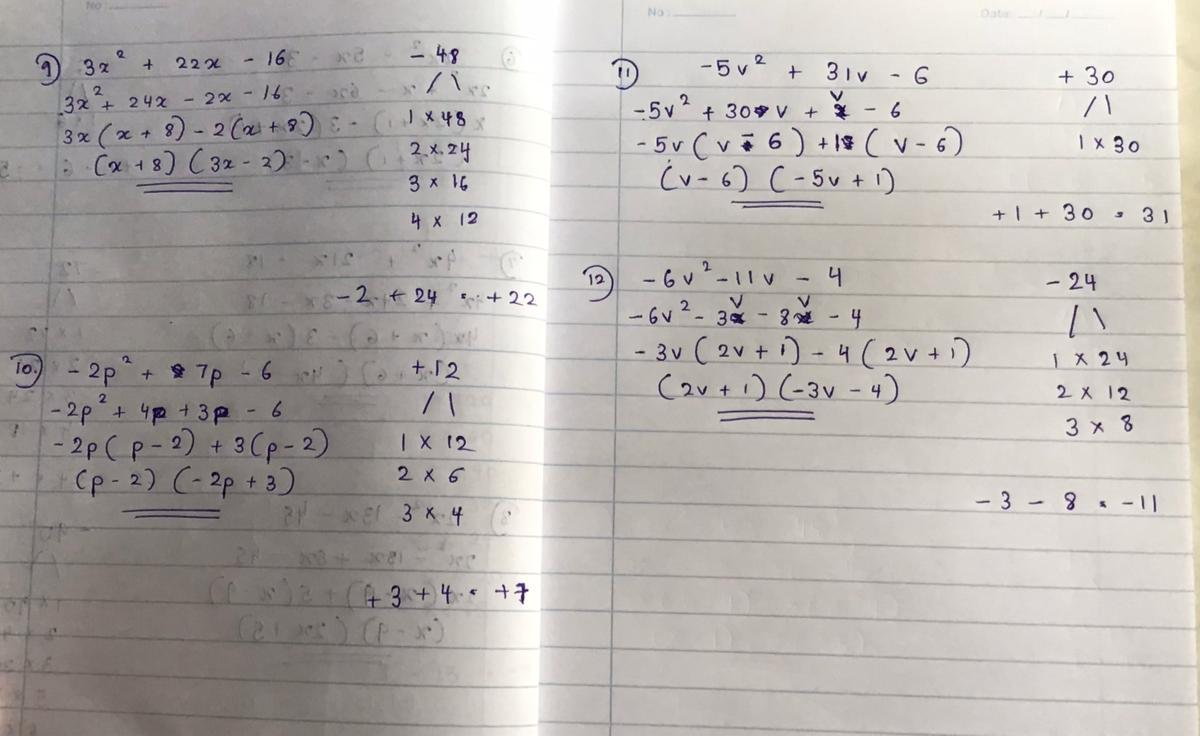 No:
9) 3x² + 22x - 16
- 48
3x² + 24x - 2x - 16
3x(x + 8) - 2(x + 8)
1 x 48
(x + 8) (3x - 2)
2 x 24
3 x 16
4 x 12
- 2 + 24 = + 22
10. - 2p² + 7p - 6
+ 12
- 2p² + 4p + 3p - 6
- 2p(p - 2) + 3(p - 2)
1 x 12
(p - 2) (-2p + 3)
2 x 6
3 x 4
+ 3 + 4 = +7
No:
Date: / /
11) -5v² + 31v - 6
+ 30
-5v² + 30v + v - 6
- 5v(v - 6) + 1(v - 6)
1 x 30
(v - 6) (-5v + 1)
+ 1 + 30 = 31
12) - 6v² - 11v - 4
- 24
- 6v² - 3v - 8v - 4
- 3v(2v + 1) - 4(2v + 1)
1 x 24
(2v + 1) (-3v - 4)
2 x 12
3 x 8
- 3 - 8 = -11